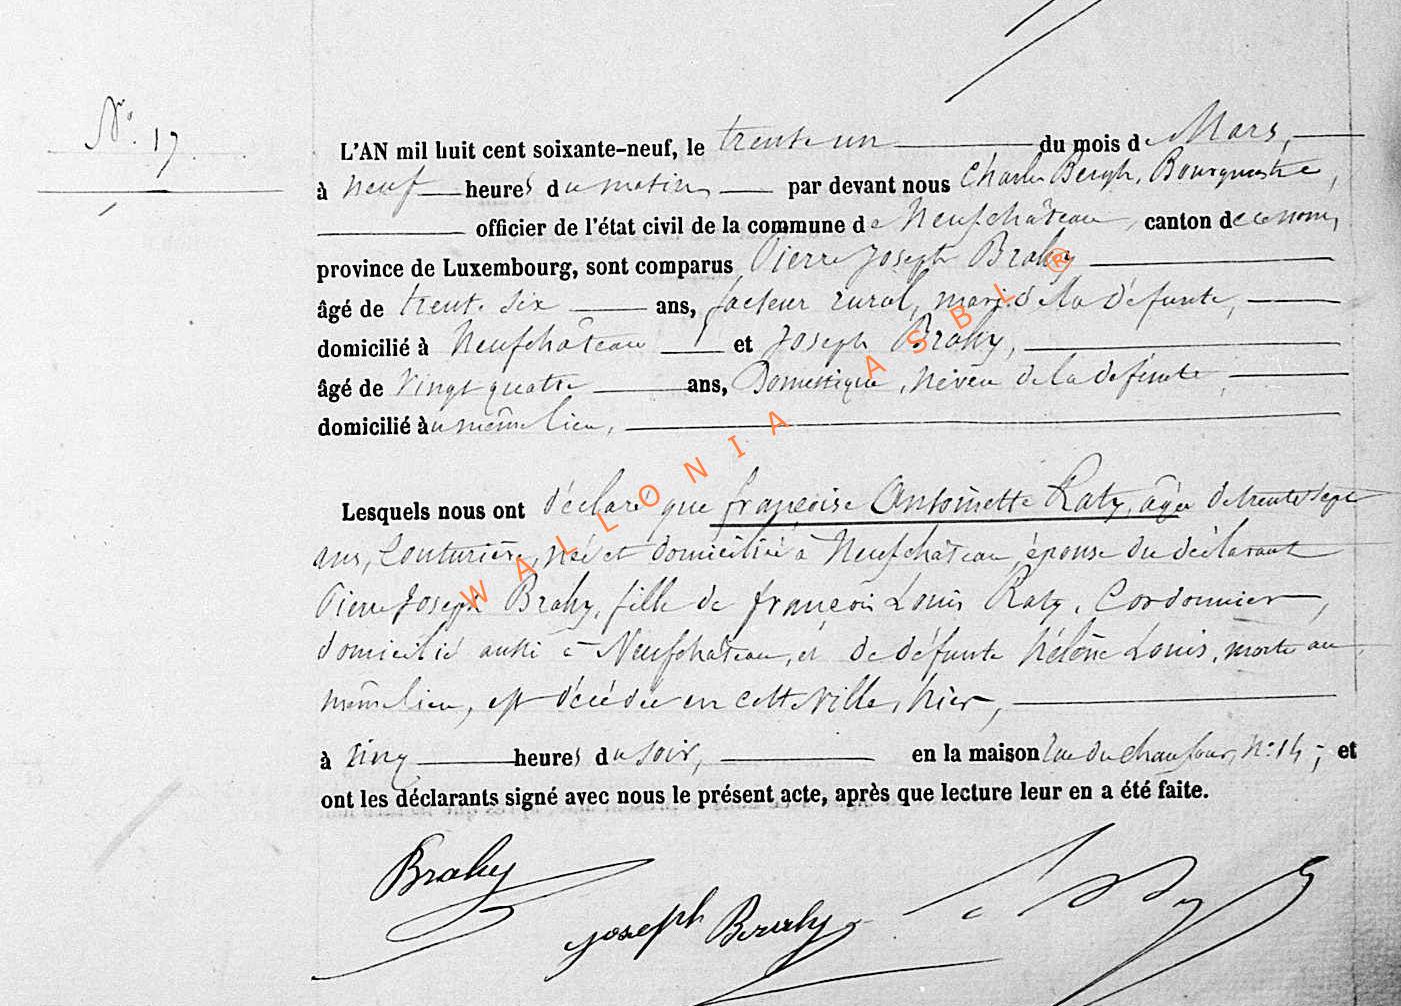 N° 17
L'AN mil huit cent soixante-neuf, le trente un du mois de Mars,
à neuf heures du matin par devant nous Charles Bergh, Bourgmestre,
officier de l'état civil de la commune de Neufchâteau, canton de ce nom,
province de Luxembourg, sont comparus Pierre Joseph Brahy
âgé de trente six ans, facteur rural, mari de la défunte,
domicilié à Neufchâteau et Joseph Brahy,
âgé de vingt quatre ans, Domestique, neveu de la défunte,
domicilié au même lieu,
Lesquels nous ont déclaré que françoise Antoinette Raty, âgée de trente sept
ans, Couturière, née et domiciliée à Neufchâteau, épouse du déclarant
Pierre Joseph Brahy, fille de françois Louis Raty, Cordonnier,
domicilié aussi à Neufchâteau, et de défunte Hélène Louis, morte au
même lieu, est décédée en cette ville, hier,
à cinq heures du soir, en la maison rue du chaufour, N° 14; et
ont les déclarants signé avec nous le présent acte, après que lecture leur en a été faite.
Brahy
Joseph Brahy
WALLONIA ASBL ®